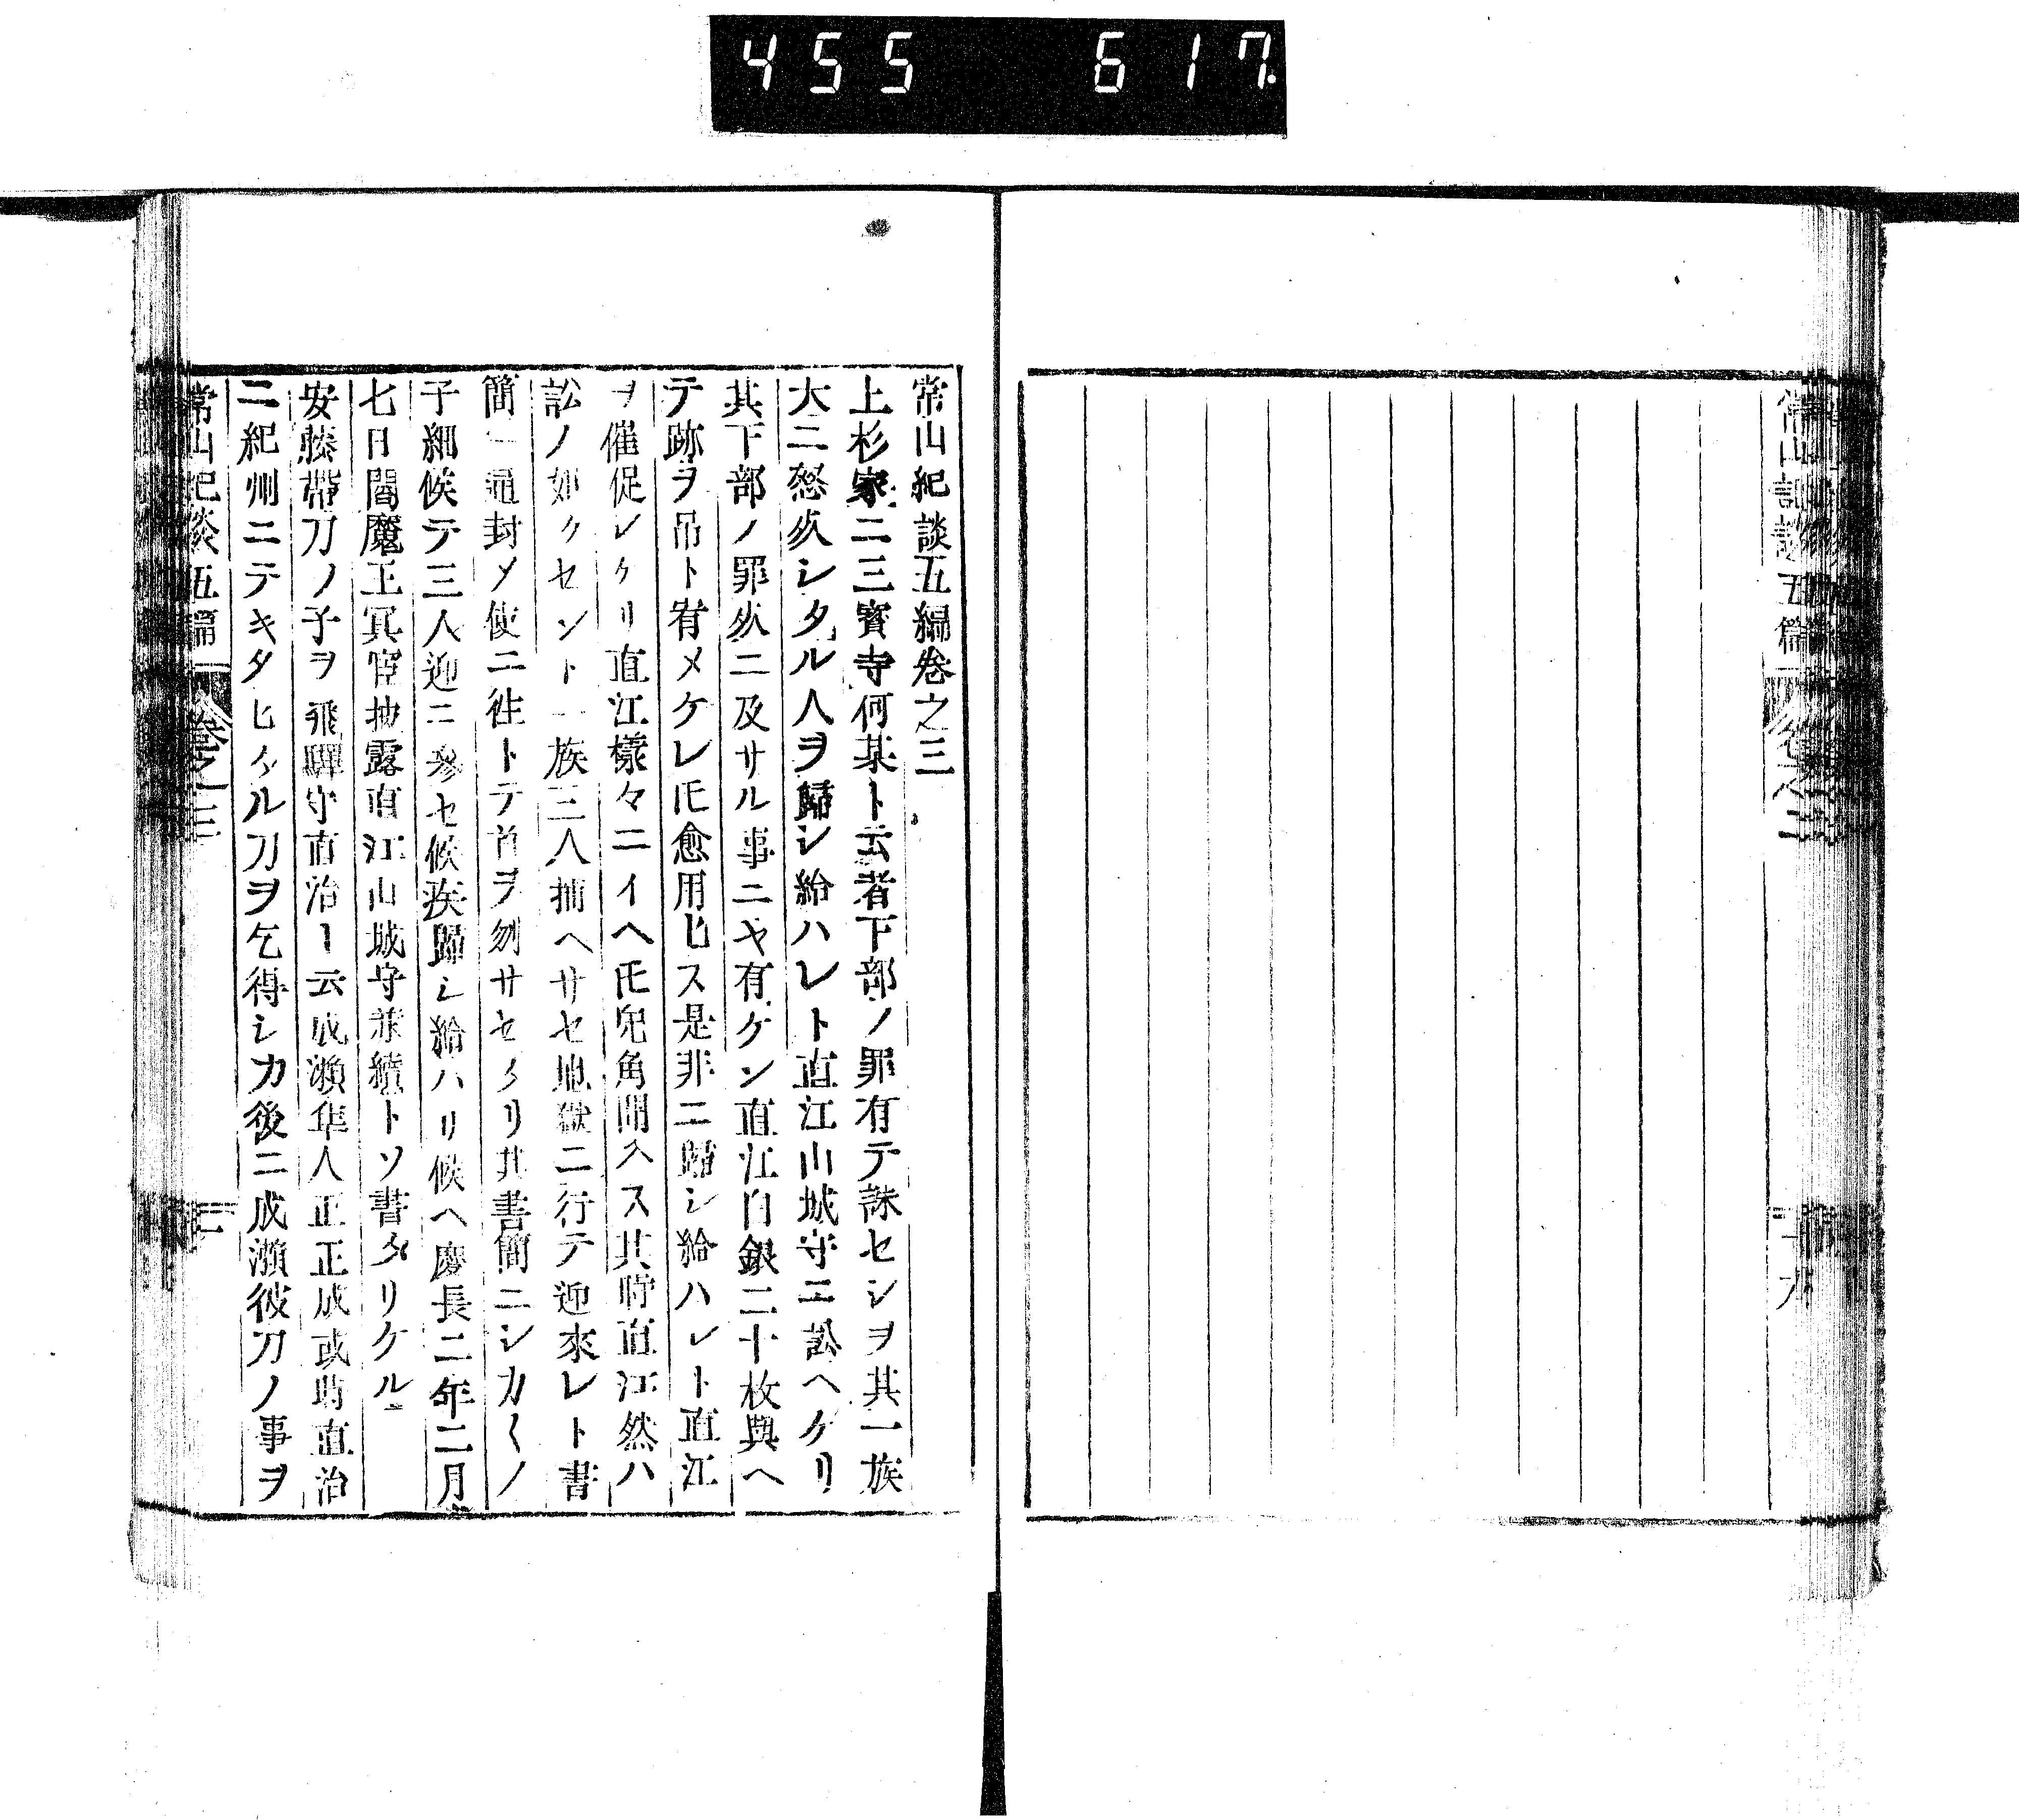 455 617.
常山紀談五編卷之三
上杉家ニ三寳寺何某ト云者下部ノ罪有テ誅セシヲ其一族
大ニ怒从シタル人ヲ歸シ給ハレト直江山城守ニ訟ヘケリ
其下部ノ罪从ニ及サル事ニヤ有ケン直江白銀二十枚與ヘ
テ跡ヲ吊ト宥メケレ𪜈愈用ヒス是非ニ歸シ給ハレト直江
ヲ催促レケリ直江樣々ニイヘ𪜈兎角聞入ス其時直江然ハ
訟ノ如クセント一族三人捕ヘサセ地獄ニ行テ迎來レト書
簡一通封メ使ニ徃トテ首ヲ刎サセタリ其書簡ニシカ〱ノ
子細候テ三人迎ニ參セ候疾歸シ給ハリ候ヘ慶長二年二月
七日閻魔王冥官披露直江山城守兼續トソ書タリケル
安藤帶刀ノ子ヲ飛驒守直治ト云成瀬隼人正正成或時直治
ニ紀州ニテキタヒタル刀ヲ乞得シカ後ニ成瀬彼刀ノ事ヲ
常山紀談五篇 卷之三 一
常山記談五篇